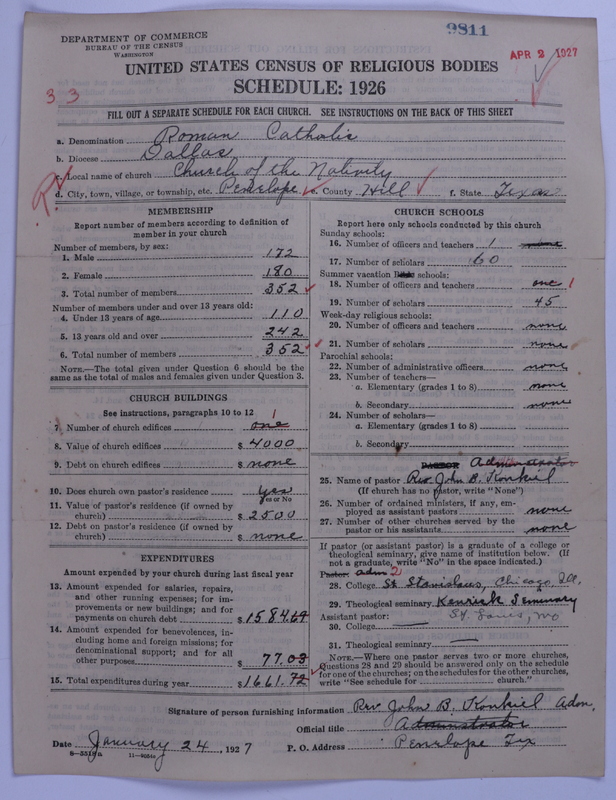 9811
DEPARTMENT OF COMMERCE
BUREAU OF THE CENSUS
WASHINGTON
APR 2 1927
UNITED STATES CENSUS OF RELIGIOUS BODIES
SCHEDULE: 1926
3 3
FILL OUT A SEPARATE SCHEDULE FOR EACH CHURCH. SEE INSTRUCTIONS ON THE BACK OF THIS SHEET
a. Denomination Roman Catholic
b. Diocese Dallas
c. Local name of church Church of the Nativity
d. City, town, village, or township, etc. Penelope e. County Hill f. State Texas
MEMBERSHIP
Report number of members according to definition of
member in your church
Number of members, by sex:
1. Male 172
2. Female 180
3. Total number of members 352
Number of members under and over 13 years old:
4. Under 13 years of age 110
5. 13 years old and over 242
6. Total number of members 352
NOTE.—The total given under Question 6 should be
same as the total of males and females given under Question 3.
CHURCH BUILDINGS
See instructions, paragraphs 10 to 12 1
7. Number of church edifices one
8. Value of church edifices $ 4000
9. Debt on church edifices $ none
10. Does church own pastor's residence yes
Yes or No
11. Value of pastor's residence (if owned by
church) $ 2500
12. Debt on pastor's residence (if owned by
church) $ none
EXPENDITURES
Amount expended by your church during last fiscal year
13. Amount expended for salaries, repairs,
and other running expenses; for im-
provements or new buildings; and for
payments on church debt $ 1584.69
14. Amount expended for benevolences, in-
cluding home and foreign missions; for
denominational support; and for all
other purposes $ 77.03
15. Total expenditures during year $ 1661.72
CHURCH SCHOOLS
Report here only schools conducted by this church
Sunday schools:
16. Number of officers and teachers 1 none
17. Number of scholars 60
Summer vacation schools:
18. Number of officers and teachers one 1
19. Number of scholars 45
Week-day religious schools:
20. Number of officers and teachers none
21. Number of scholars none
Parochial schools:
22. Number of administrative officers none
23. Number of teachers—
a. Elementary (grades 1 to 8) none
b. Secondary none
24. Number of scholars—
a. Elementary (grades 1 to 8)
b. Secondary
PASTOR Administrator
25. Name of pastor Rev John B. Konkiel
(If church has no pastor, write "None")
26. Number of ordained ministers, if any, em-
ployed as assistant pastors none
27. Number of other churches served by the
pastor or his assistants none
If pastor (or assistant pastor) is a graduate of a college or
theological seminary, give name of institution below. (If
not a graduate, write "No" in the space indicated.)
Pastor: adm 2
28. College St Stanislaus, Chicago Ill.
29. Theological seminary Kenrick Seminary
Assistant pastor: St. Louis, Mo
30. College
31. Theological seminary
NOTE.—Where one pastor serves two or more churches,
Questions 28 and 29 should be answered only on the schedule
for one of the churches; on the schedules for the other churches,
write "See schedule for church."
Signature of person furnishing information Rev John B. Konkiel Adm.
Official title Administrator
Date January 24, 1927 P. O. Address Penelope Tex